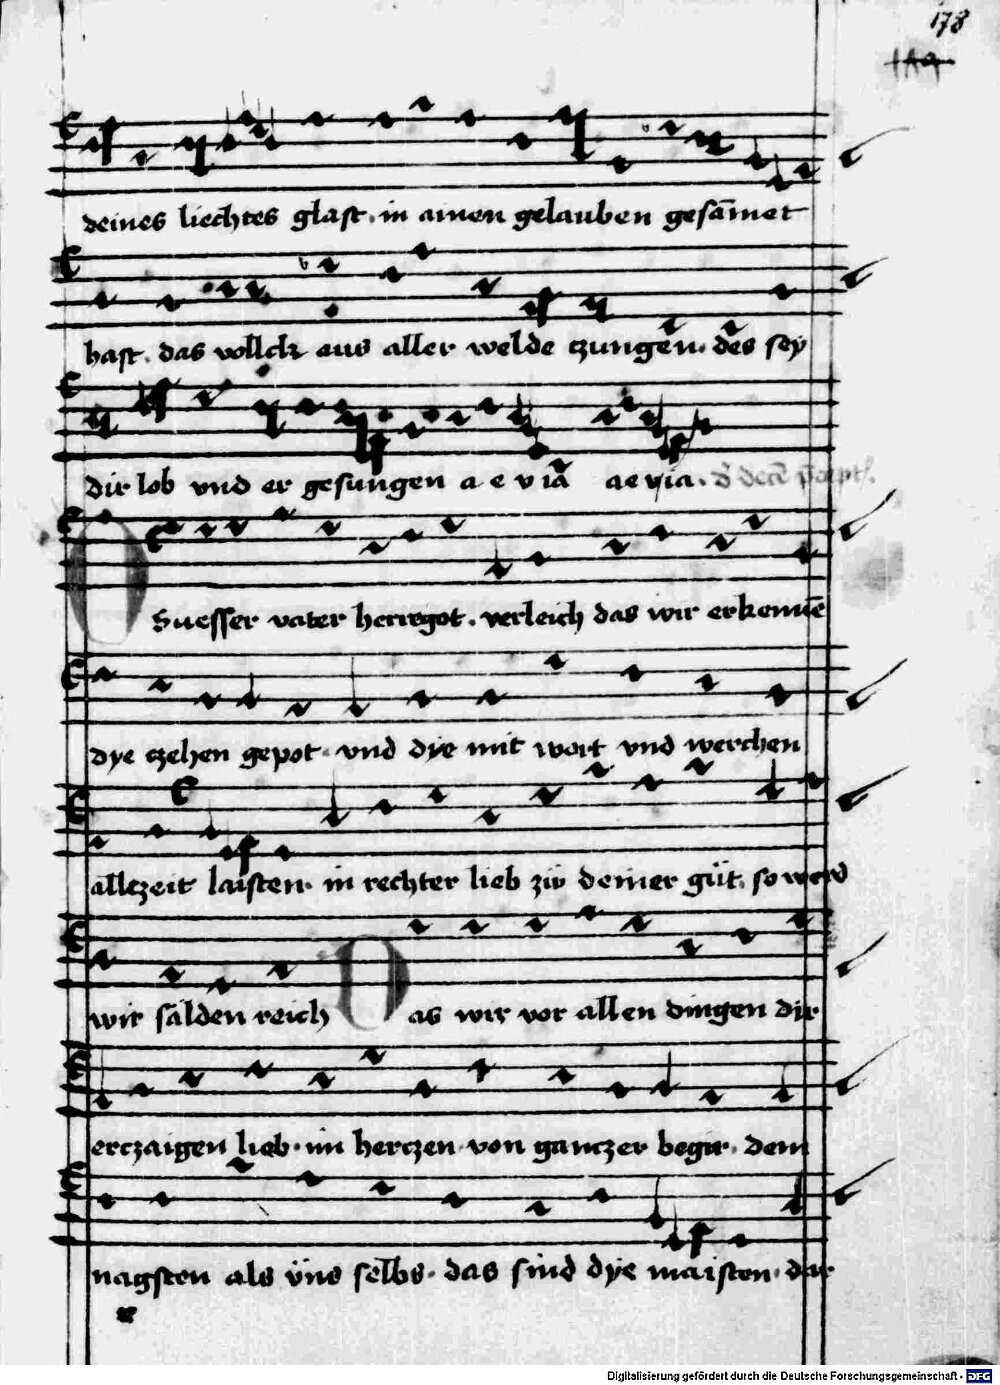 178
deines liechtes glast. in ainen gelauben gesāmet
hast. das vollck aus aller welde czungen. des sey
dir lob vnd er gesungen a e v ia a e v ia.
O Suesser vater herregot. verleich das wir erkennē
dye czehen gepot. vnd dye mit wort vnd werchen
allczeit laisten. in rechter lieb zü deiner güt. so werd
wir sälden reich Das wir vor allen dingen dir
erczaigen lieb. im herczen. von ganczer begir. dem
nagsten als üns selbs. das sind dye maisten. dar
Digitalisierung gefördert durch die Deutsche Forschungsgemeinschaft - DFG